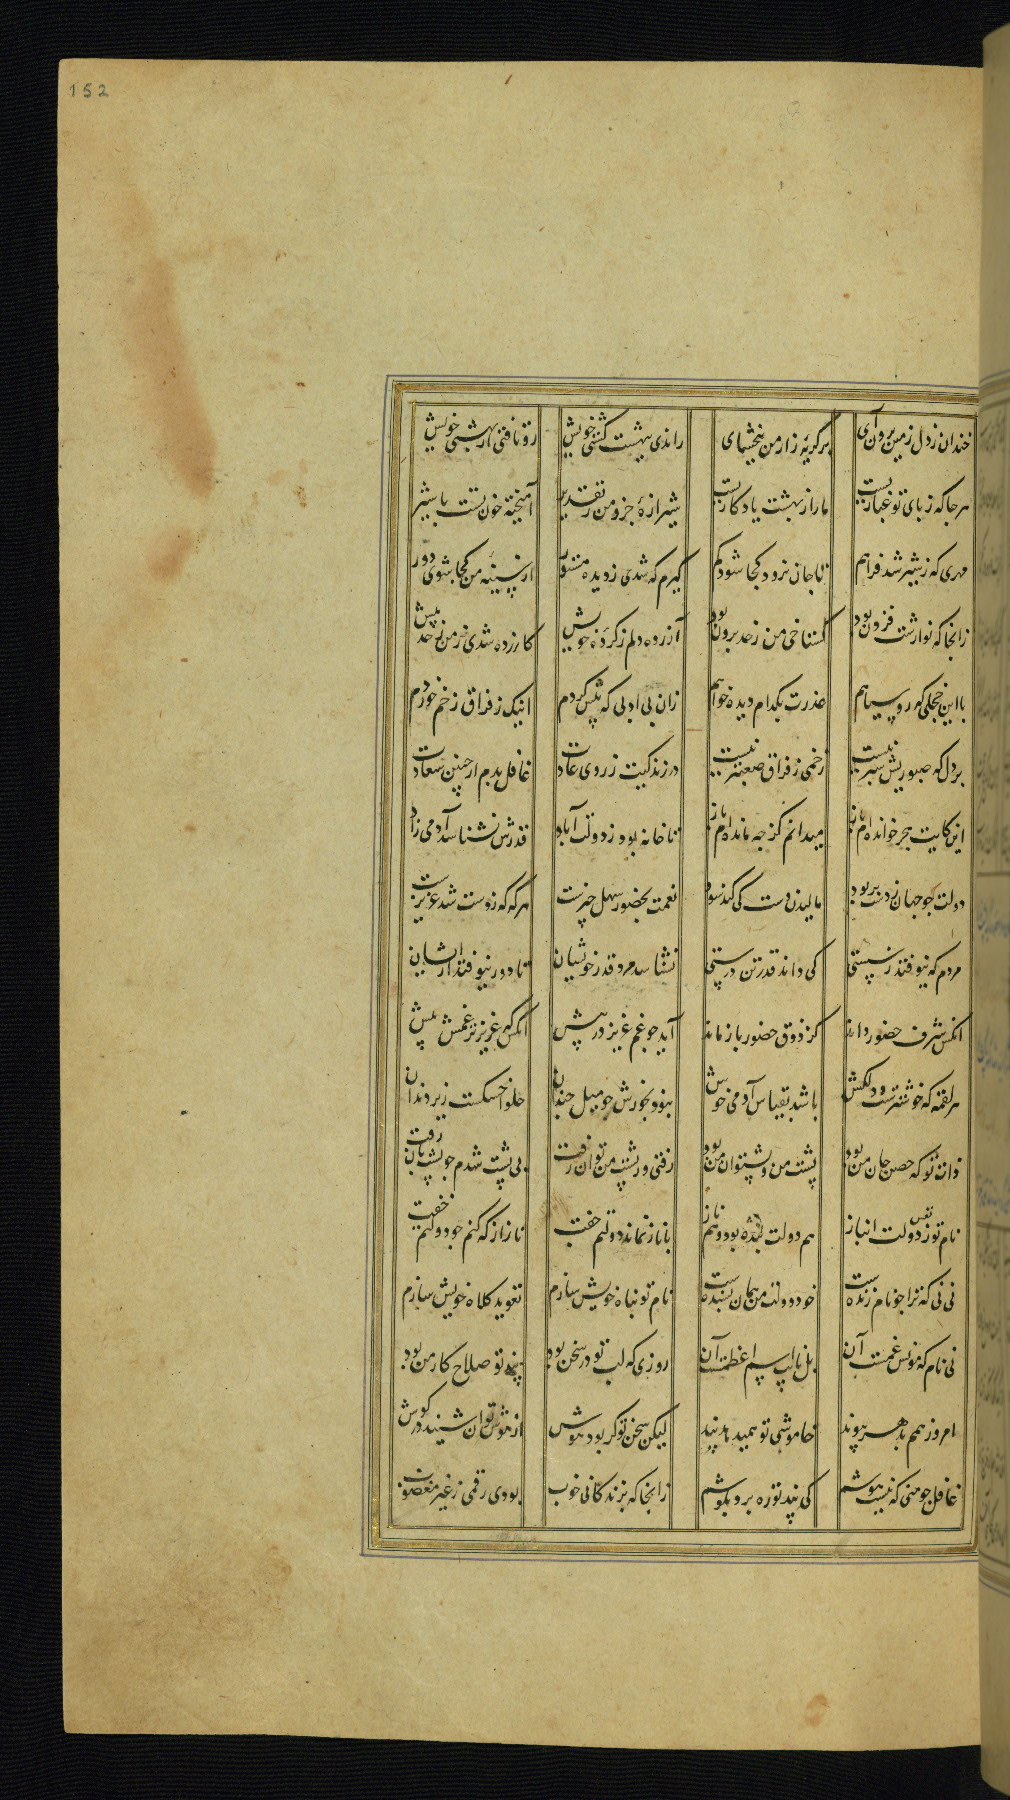 152
خندان ز دل زمین برون آی برگریه زار من ببخشای راندی ببهشت کشتی خویش رو تافتی از بهشتی خویش
هر جا که ز پای تو غباریست ما را ز بهشت یادگاریست شیرازهٔ جزو من ز تقدیر آمیخته خون تست با شیر
مهری که ز شیر شد فراهم تا جان نرود کجا شود کم گیرم که شدی ز دیده مستور از سینه من کجا شوی دور
زانجا که نوازشت فزون بود گستاخی من ز حد برون بود آزرده دلم ز کردهٔ خویش کازرده شدی ز من ز حد بیش
با این خجلی که رو سیاهم عذرت بکدام دیده خواهم زان بی ادبی که پیش کردم اینک ز فراق زخم خوردم
بر دل که صبوریش سپر نیست زخمی ز فراق صعبتر نیست در زندگیت ز روی عادت غافل بدم از چنین سعادت
این کایت هجر خوانده ام باز میدانم کز چه مانده ام باز تا خانه بود ز دولت آباد قدرش نشناسد آدمی زاد
دولت چو جهان ز دست بربود مالیدن دست کی کند سود نعمت بحضور سهل چیزست هر گه که ز دست شد عزیزست
مردم که نیوفتند ز سستی کی داند قدر تن درستی نشناسد مرد قدر خویشان تا دور نیوفتد ازیشان
آنکس شرف حضور داند کز ذوق حضور باز ماند آید چو غم عزیز در پیش آنکس که عزیزتر غمش بیش
هر لقمه که خوشترست و دلکش باشد بقیاس آدمی خوش نبود بخورش چو میل چندان حلوا خسکست زیر دندان
ذات تو که حصن جان من بود پشت من و پشتوان من بود رفتی و ز پشت من توان رفت بی پشت شدم چو پشتبان رفت
نام تو ز دولت انباز هم دولت بنده بود و هم ناز با ناز نماند دولتم جفت ناز از که کنم چو دولتم خفت
نی نی که ترا چو نام زنده ست خود دولت من همان بسنده ست نام تو پناه خویش سازم تعوید کلاه خویش سازم
نی نام که مونس غمست آن بل نایب اسم اعظمست آن روزی که لب تو در سخن بود پند تو صلاح کار من بود
امروز هم به مهر پیوند خاموشی تو همی دهد پند لیکن سخن تو گر بود هوش از هوش توان شنید در گوش
غافل چو منی که نیست هوشم کی پند تو ره برد بگوشم زانجا که بزندگانی خوب بودی رقمی ز غیر مغضوب